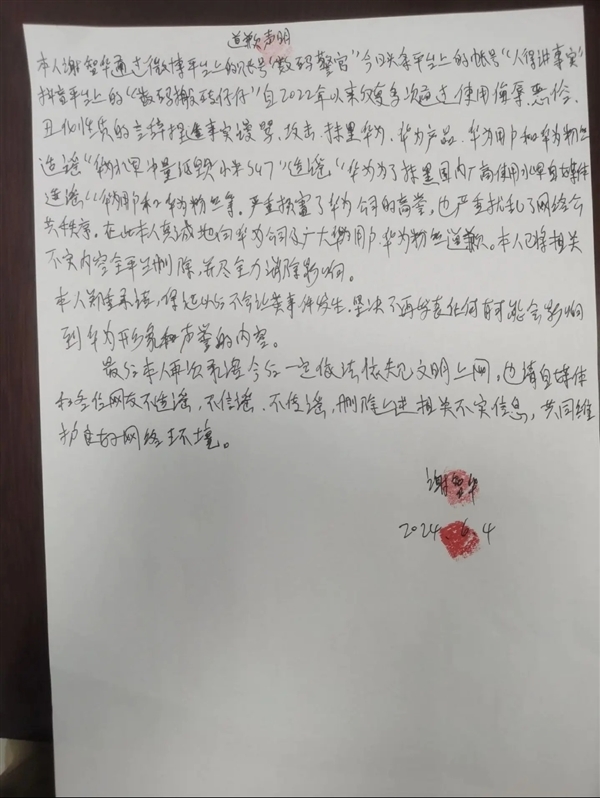 道歉声明
本人谢智华通过微博平台上的账号“数码警官”今日头条平台上的帐号“人得讲事实”
抖音平台上的“数码搬砖仔仔”自2022年以来反复多次通过使用侮辱、恶俗、
丑化性质的言辞捏造事实谩骂、攻击、抹黑华为、华为产品、华为用户和华为粉丝
造谣“华为水军计量低毁小米SU7”造谣“华为为了抹黑国内厂商使用水军自媒体
造谣“华为用户和华为粉丝等。严重损害了华为公司的商誉，也严重扰乱了网络公
共秩序，在此本人真诚地向华为公司及广大华为用户、华为粉丝道歉。本人已将相关
不实内容全平台删除，并尽全力消除影响。
本人郑重承诺，保证以后不会让类事件发生，坚决不再发表任何有可能会影响
到华为形象和声誉的内容。
最后本人再次承诺今后一定依法依规文明上网，也请自媒体
和各位网友不造谣，不信谣、不传谣，删除上述相关不实信息，共同维
护良好网络环境。
谢智华
2024.6.4